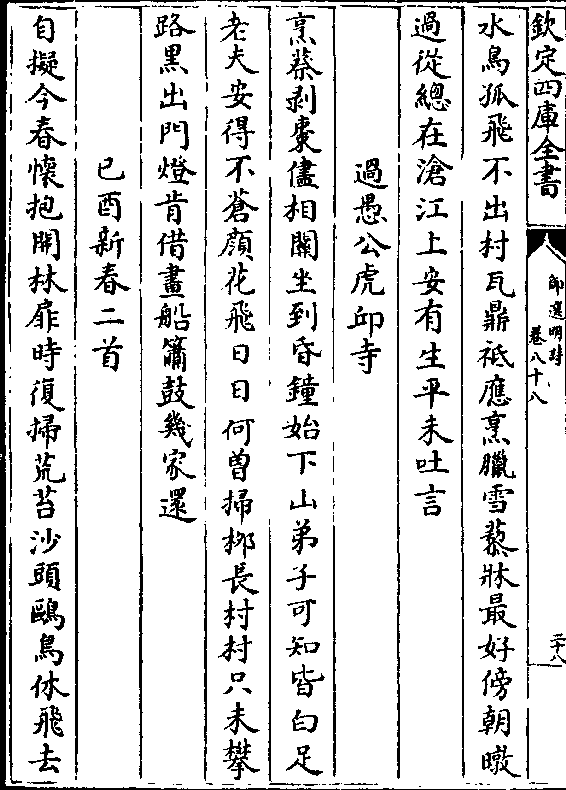 欽定四庫全書
御選明詩
卷八十八
二十八
水鳥孤飛不出村瓦鼎祗應烹臘雪藜牀最好傍朝暾
過從總在滄江上安有生平未吐言
過愚公虎邱寺
烹蔡剥棗儘相關坐到昏鐘始下山弟子可知皆白足
老夫安得不蒼顔花飛日日何曽掃桞長村村只未攀
路黒出門燈肯借畫船簫鼓幾家還
己酉新春二首
自擬今春懷抱開林扉時復掃荒苔沙頭鷗鳥休飛去